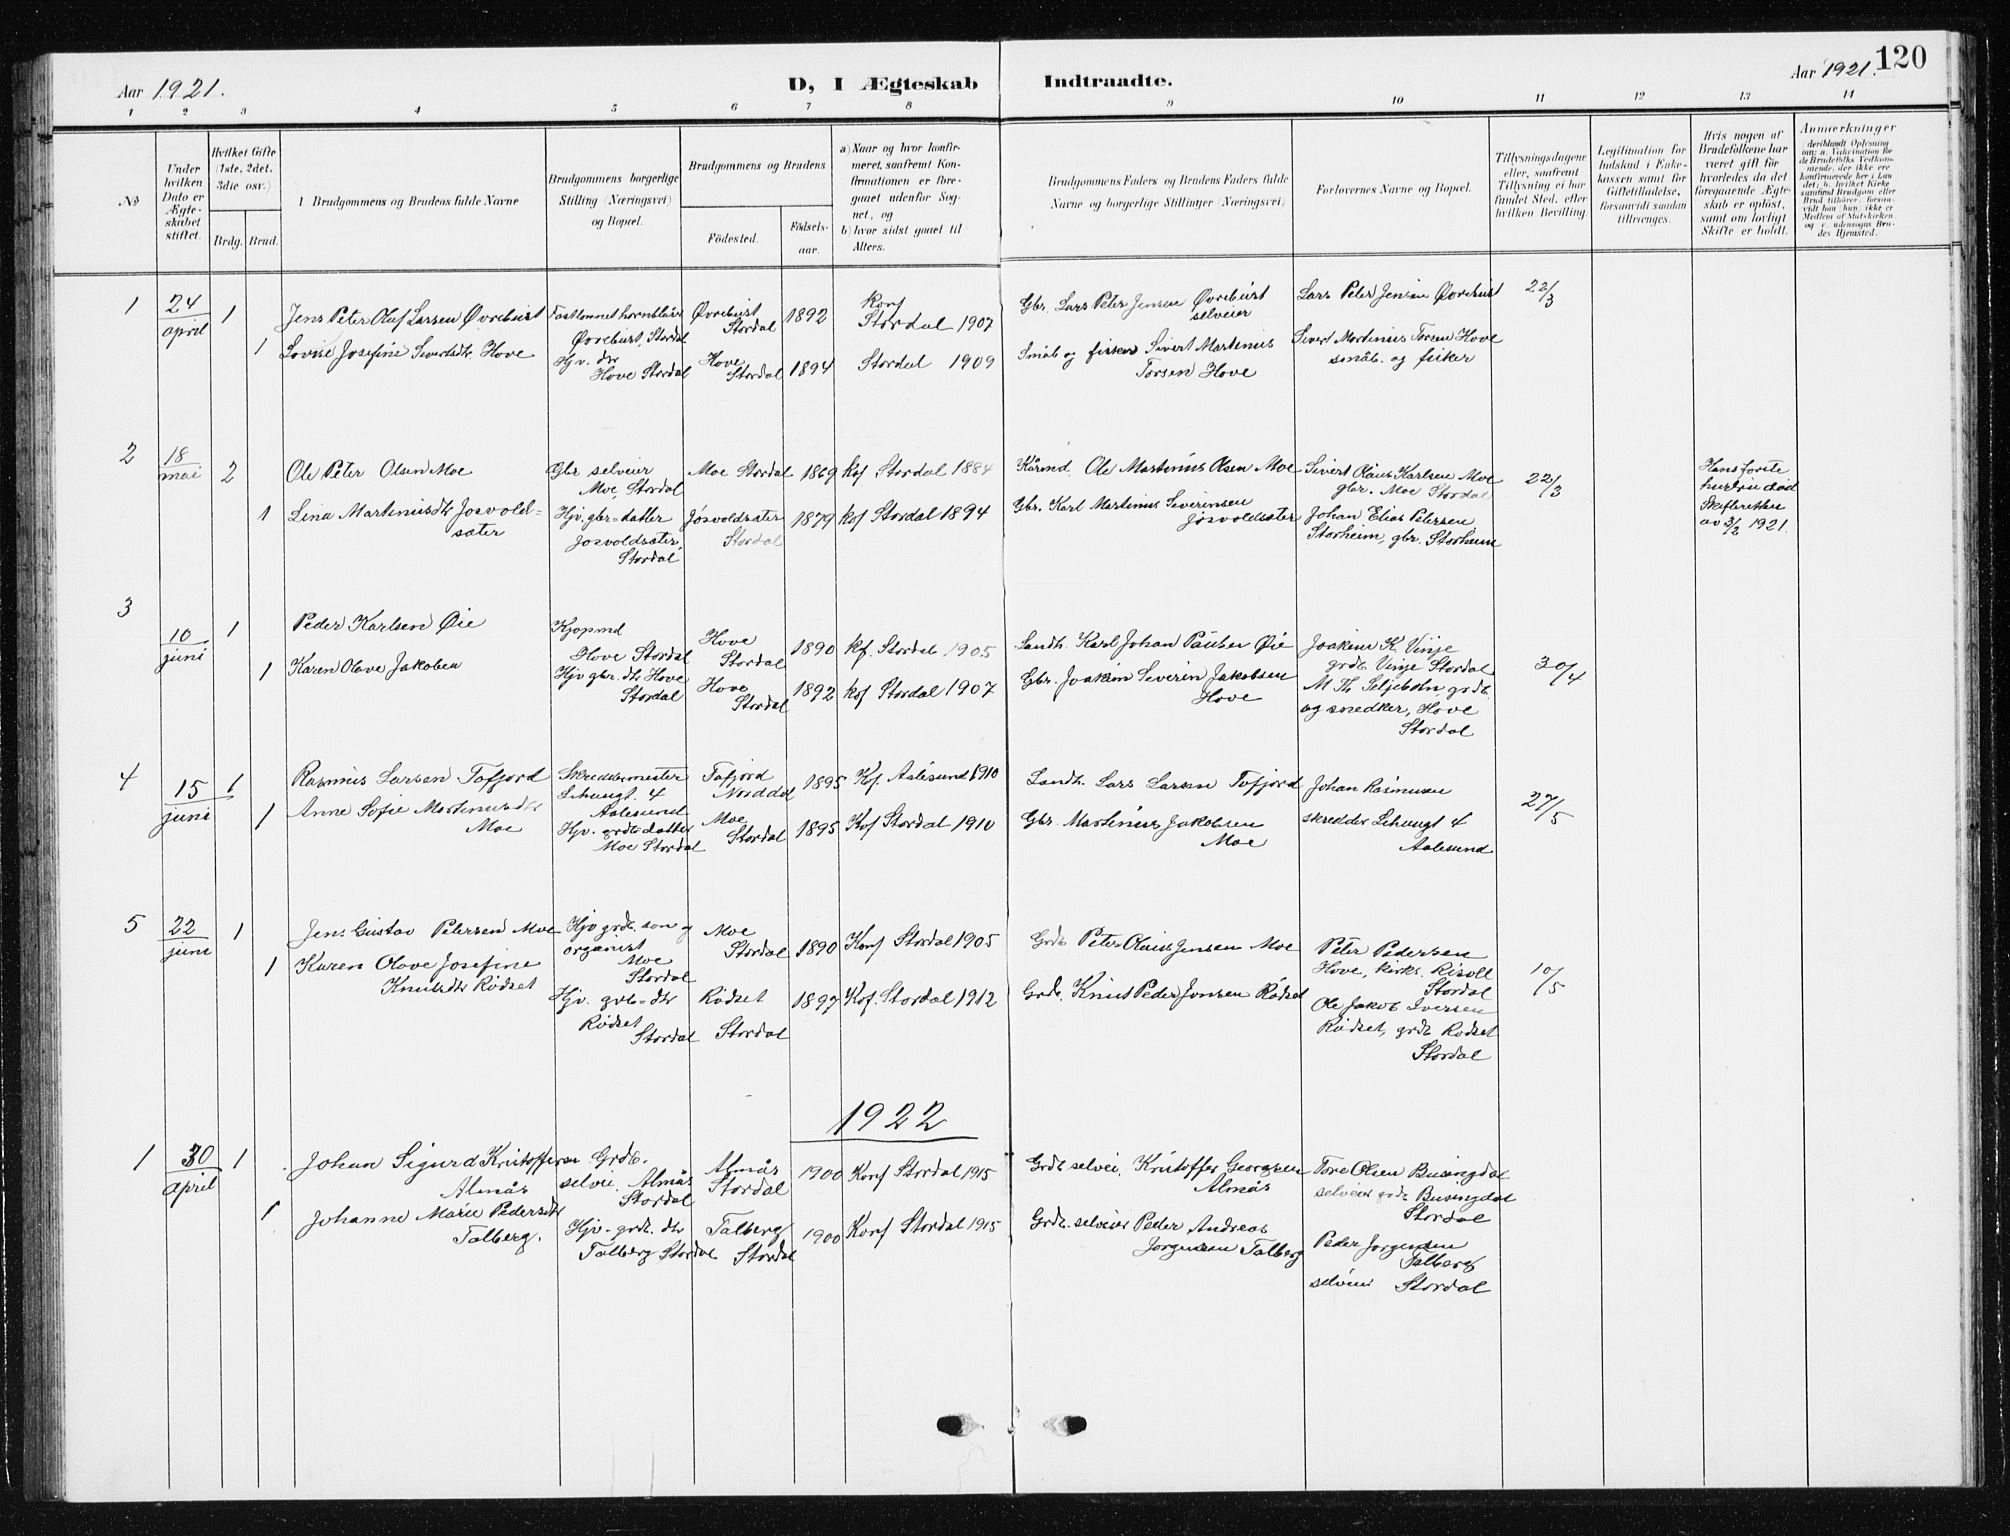 Aar 1921.
D, I Ægteskab Indtraadte.
Aar 1921. 120
1 2 3 4 5 6 7 8 9 10 11 12 13 14
No
Under hvilken Dato er Ægteskabet stiftet.
Hvilket Gifte (1ste, 2det, 3die osv.)
Brdg. Brud.
Brudgommens og Brudens fulde Navne
Brudgommens borgerlige Stilling (Næringsvei) og Bopæl.
Brudgommens og Brudens
Fødested. Fødselsaar.
a) Naar og hvor konfirmeret, saafremt Konfirmationen er foregaaet udenfor Sognet, og
b) hvor sidst gaaet til Alters.
Brudgommens Faders og Brudens Faders fulde Navne og borgerlige Stillinger (Næringsvei)
Forlovernes Navne og Bopæl.
Tillysningsdagene eller, saafremt Tillysning ei har fundet Sted, efter hvilken Bevilling.
Legitimation for Indskud i Enkekassen samt for Giftetilladelse, forsaavidt saadan tiltrænges.
Hvis nogen af Brudefolkene har været gift før hvorledes da det foregaaende Ægteskab er opløst, samt om lovligt Skifte er holdt.
Anmærkninger
1 24/april 1
Jens Peter Oluf Larsen Øvrebust
Fastlønnet hornblåser
Øvrebust, Stordal
Øvrebust
Stordal
1892
Konf
Stordal 1907
Gbr. Lars Peter Jensen Øvrebust
selveier
Lars Peter Jensen Øvrebust
22/3
1 Lovise Josefine Sivertsdtr. Hove
Hjv. dtr
Hove Stordal
Hove
Stordal
1894
Stordal 1909
Småb og fisker Sivert Martinus
Torsen Hove
Sivert Martinus Torsen Hove
småb. og fisker
2 18/mai 2
Ole Peter Olsen Moe
Gbr selveier
Moe, Stordal
Moe Stordal 1869
kof Stordal 1884
Kårmd Ole Martinus Olsen Moe
Sivert Olaus Karlsen Moe
gbr. Moe Stordal
22/3
Hans første
hustru død
Skifteretten
av 3/2 1921.
1 Lina Martinusdtr Jøsvold=
sæter
Hjv. gbr=datter
Jøsvoldsæter,
Stordal
Jøsvoldsæter
Stordal
1879
kof Stordal 1894
Gbr. Karl Martinus Severinsen
Jøsvoldsæter
Johan Elias Petersen
Storheim, gbr. Storheim
3 10/juni 1
Peder Karlsen Øie
Kjøpmd
Hove Stordal
Hove
Stordal
1890
kf. Stordal 1905
Landh. Karl Johan Paulsen Øie
Joakim K. Vinje
grdb Vinje Stordal
30/4
1 Karen Olave Jakobsen
Hjv gbr. dtr Hove
Stordal
Hove
Stordal
1892
kof Stordal 1907
Gbr. Joakim Severin Jakobsen
Hove
M Th. Seljebotn, grdb.
og snedker, Hove
Stordal
4 15/juni 1
Rasmus Larsen Tafjord
Skreddermester
Aalesund
Tafjord
Norddal
1895
Kof. Aalesund 1910
Landh. Lars Larsen Tafjord
Johan Rasmusen
skredder
Aalesund
27/5
1 Anne Sofie Martinusdtr
Moe
Hjv. grdb datter
Moe Stordal
Moe
Stordal
1895
Kof Stordal 1910
Gbr. Martinus Jakobsen
Moe
5 22/juni 1
Jens Gustav Petersen Moe
Hjv grdb. søn og
organist
Moe
Stordal
Moe
Stordal
1890
Konf Stordal 1905
Grdb Peter Olaus Jensen Moe
Peter Pedersen
Hove, kirks.
Stordal
10/5
1 Karen Olave Josefine
Knutsdtr Rødset
Hjv. grb=dtr
Rødset
Stordal
Rødset
Stordal
1897
Kof. Stordal 1912
Grdb. Knut Peder Jonsen Rødset
Ole Jakob Iversen
Rødset, grdb Rødset
Stordal
1922
1 30/april 1
Johan Sigurd Kristoffersen
Almås
Grdb.
selvei. Almås
Stordal
Almås
Stordal
1900
Konf Stordal 1915
Grdb selvei. Kristoffer Georgsen
Almås
Tore Olsen Busingdal
selveier grdb Busingdal
Stordal
1 Johanne Marie Pedersdtr
Talberg.
Hjv. grdb. dtr
Talberg Stordal
Talberg
Stordal
1900
Konf Stordal 1915
Grdb. selveier Peder Andreas
Jørgensen Talberg
Peder Jørgensen
Talberg
selveier Stordal